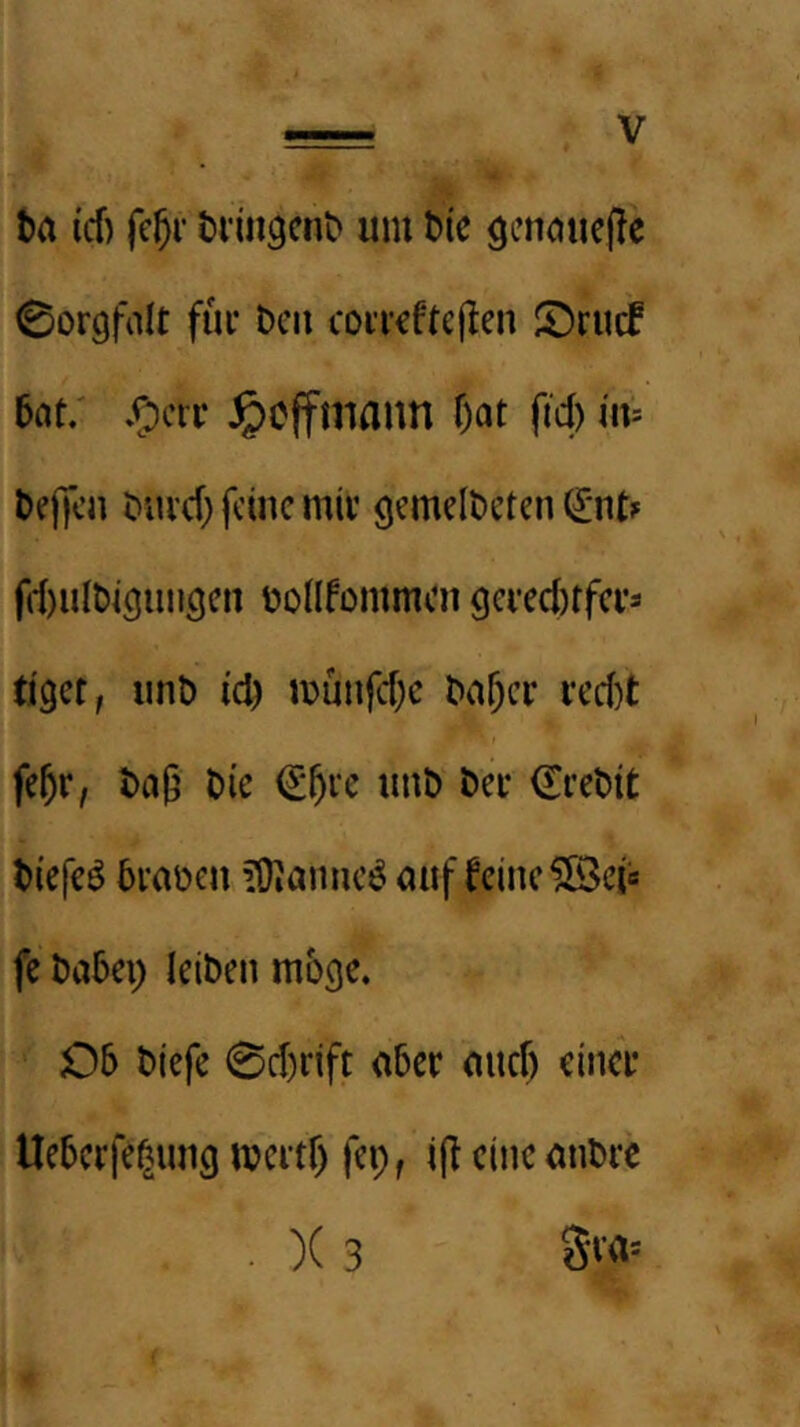 V
da ich sehr dringend um die genaueste
Sorgfalt für den correktesten Druck
bat. Herr Hoffmann hat sich in=
dessen durch seine mir gemeldeten Ent=
schuldigungen vollkommen gerechtfer=
tiget, und ich wünsche daher recht
sehr, daß die Ehre und der Credit
dieses braven Mannes auf keine Wei=
se dabey leiden möge.
Ob diese Schrift aber auch einer
Uebersetzung werth sey, ist eine andre
)( 3 Fra=